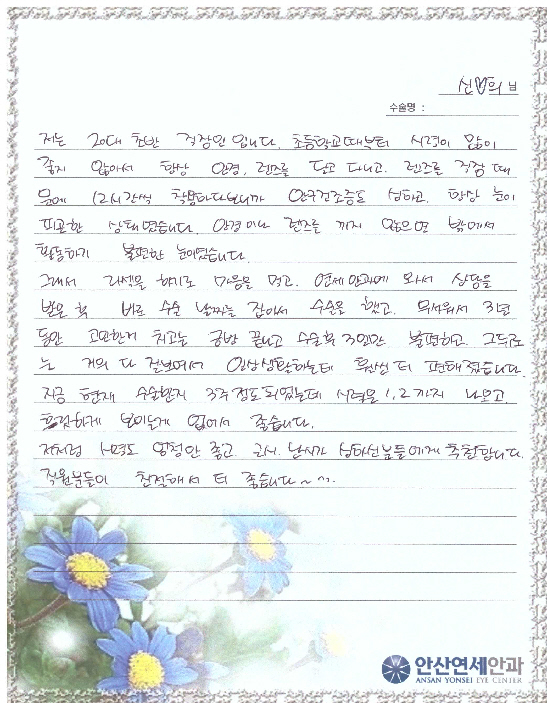 신♡의 님
수술명 :
저는 20대 초반 직장인 입니다. 초등학교때부터 시력이 많이
좋지 않아서 항상 안경, 렌즈를 달고 다니고. 렌즈를 직장 때
문에 12시간씩 착용하다보니까 안구건조증도 심하고, 항상 눈이
피곤한 상태였습니다. 안경이나 렌즈를 끼지 않으면 밖에서
활동하기 불편한 눈이였습니다.
그래서 라섹을 하기로 마음을 먹고. 연세안과에 와서 상담을
받은 후 바로 수술 날짜는 잡아서 수술을 했고. 무서워서 3년
동안 고민한거 치고는 금방 끝나고 수술후 3일만 불편하고. 그뒤로
는 거의 다 잘보여서 일상생활하는데 훨씬 더 편해졌습니다.
지금 현재 수술한지 3주정도 되었는데 시력은 1.2까지 나오고.
흐림하게 보이는게 없어서 좋습니다.
저처럼 시력도 엄청 안 좋고 근시. 난시가 심하신분들에게 추천합니다.
직원분들이 친절해서 더 좋습니다~ ^^.
안산연세안과
ANSAN YONSEI EYE CENTER